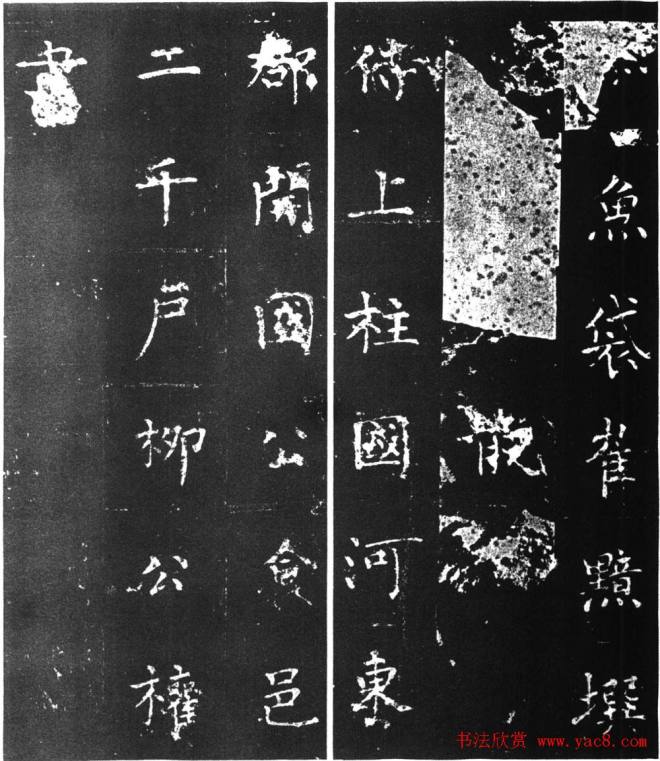 魚袋崔黯撰
散
侍上柱國河東
都開國公食邑
二千户柳公權
書
书法欣赏 www.yac8.com